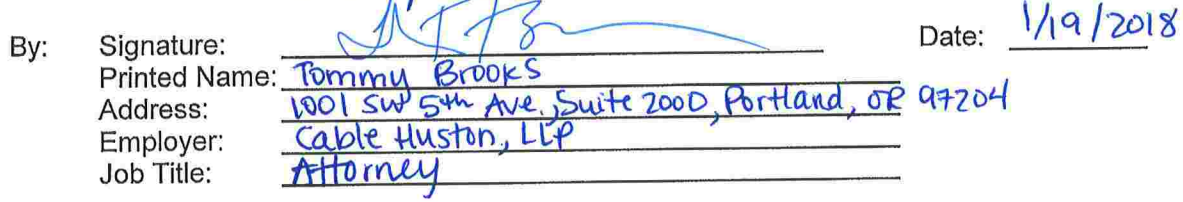 By: Signature: Date: 1/19/2018
Printed Name: Tommy Brooks
Address: 1001 SW 5th Ave., Suite 2000, Portland, OR 97204
Employer: Cable Huston, LLP
Job Title: Attorney